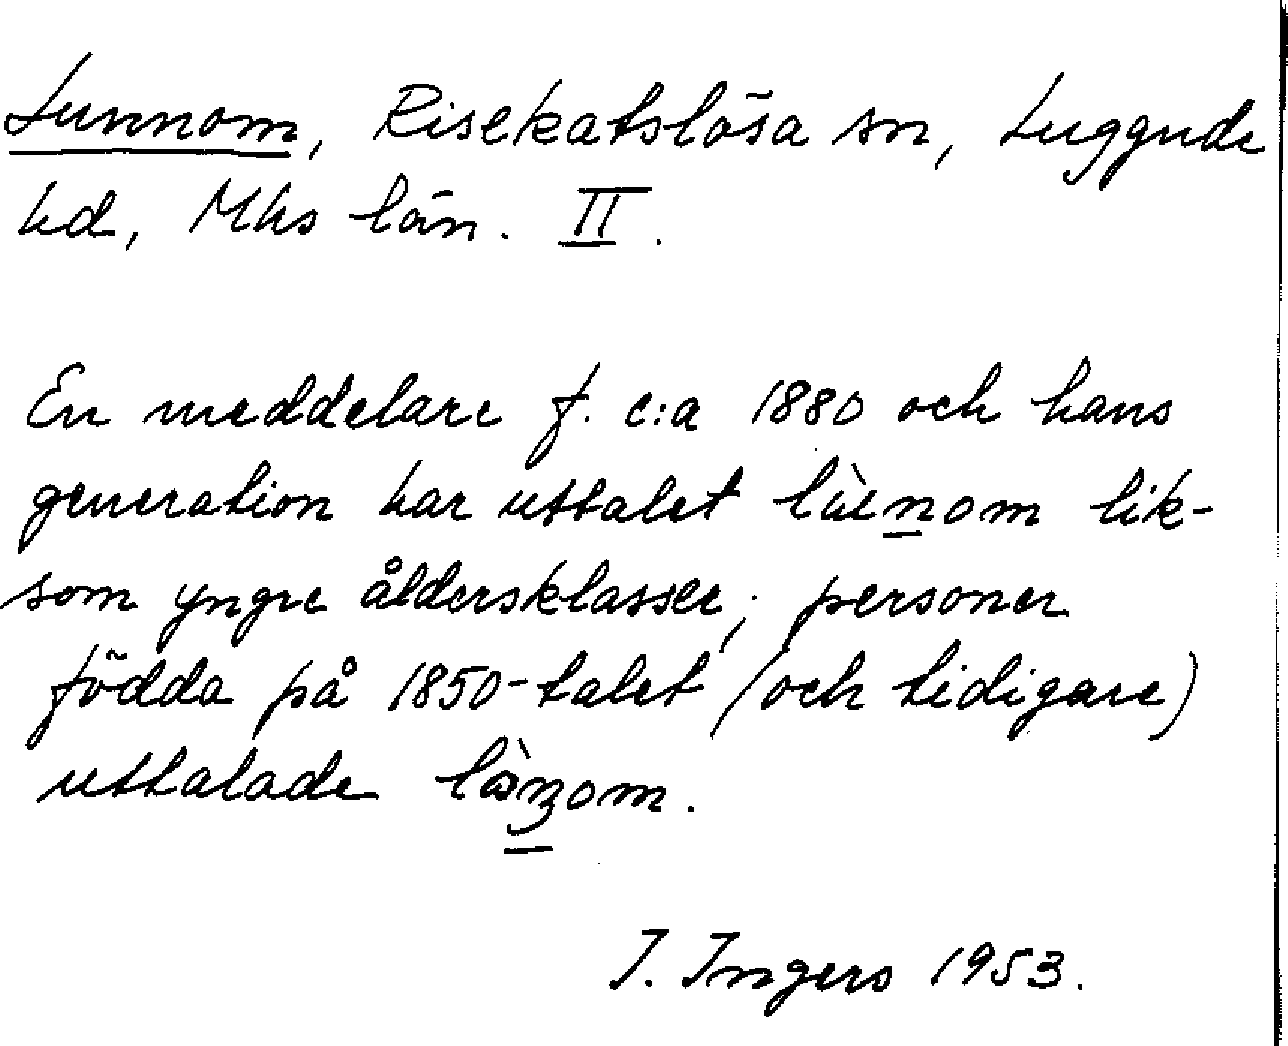 Lunnom, Risekatslösa sn, Luggude
hd, Mhs län. II.
En meddelare f. c:a 1880 och hans
generation har uttalet lùenom lik-
som yngre åldersklasser; personer
födda på 1850-talet (och tidigare)
uttalade
I. Ingers 1953.